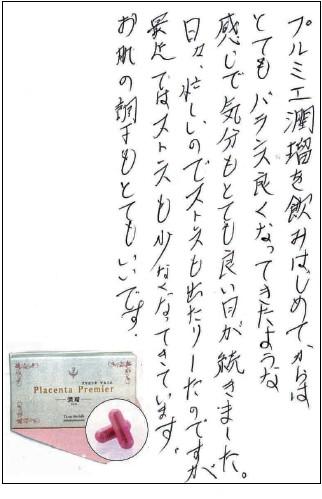 プルミエ潤瑠を飲みはじめて、からは
とてもバランス良くなってきたような
感じで気分もとても良い日が続きました。
日々、忙しいのでストレスも出たりーたのですが
最近ではストレスも少なくなってきています。
お肌の調子もとてもいいです。
Placenta Premier
潤瑠